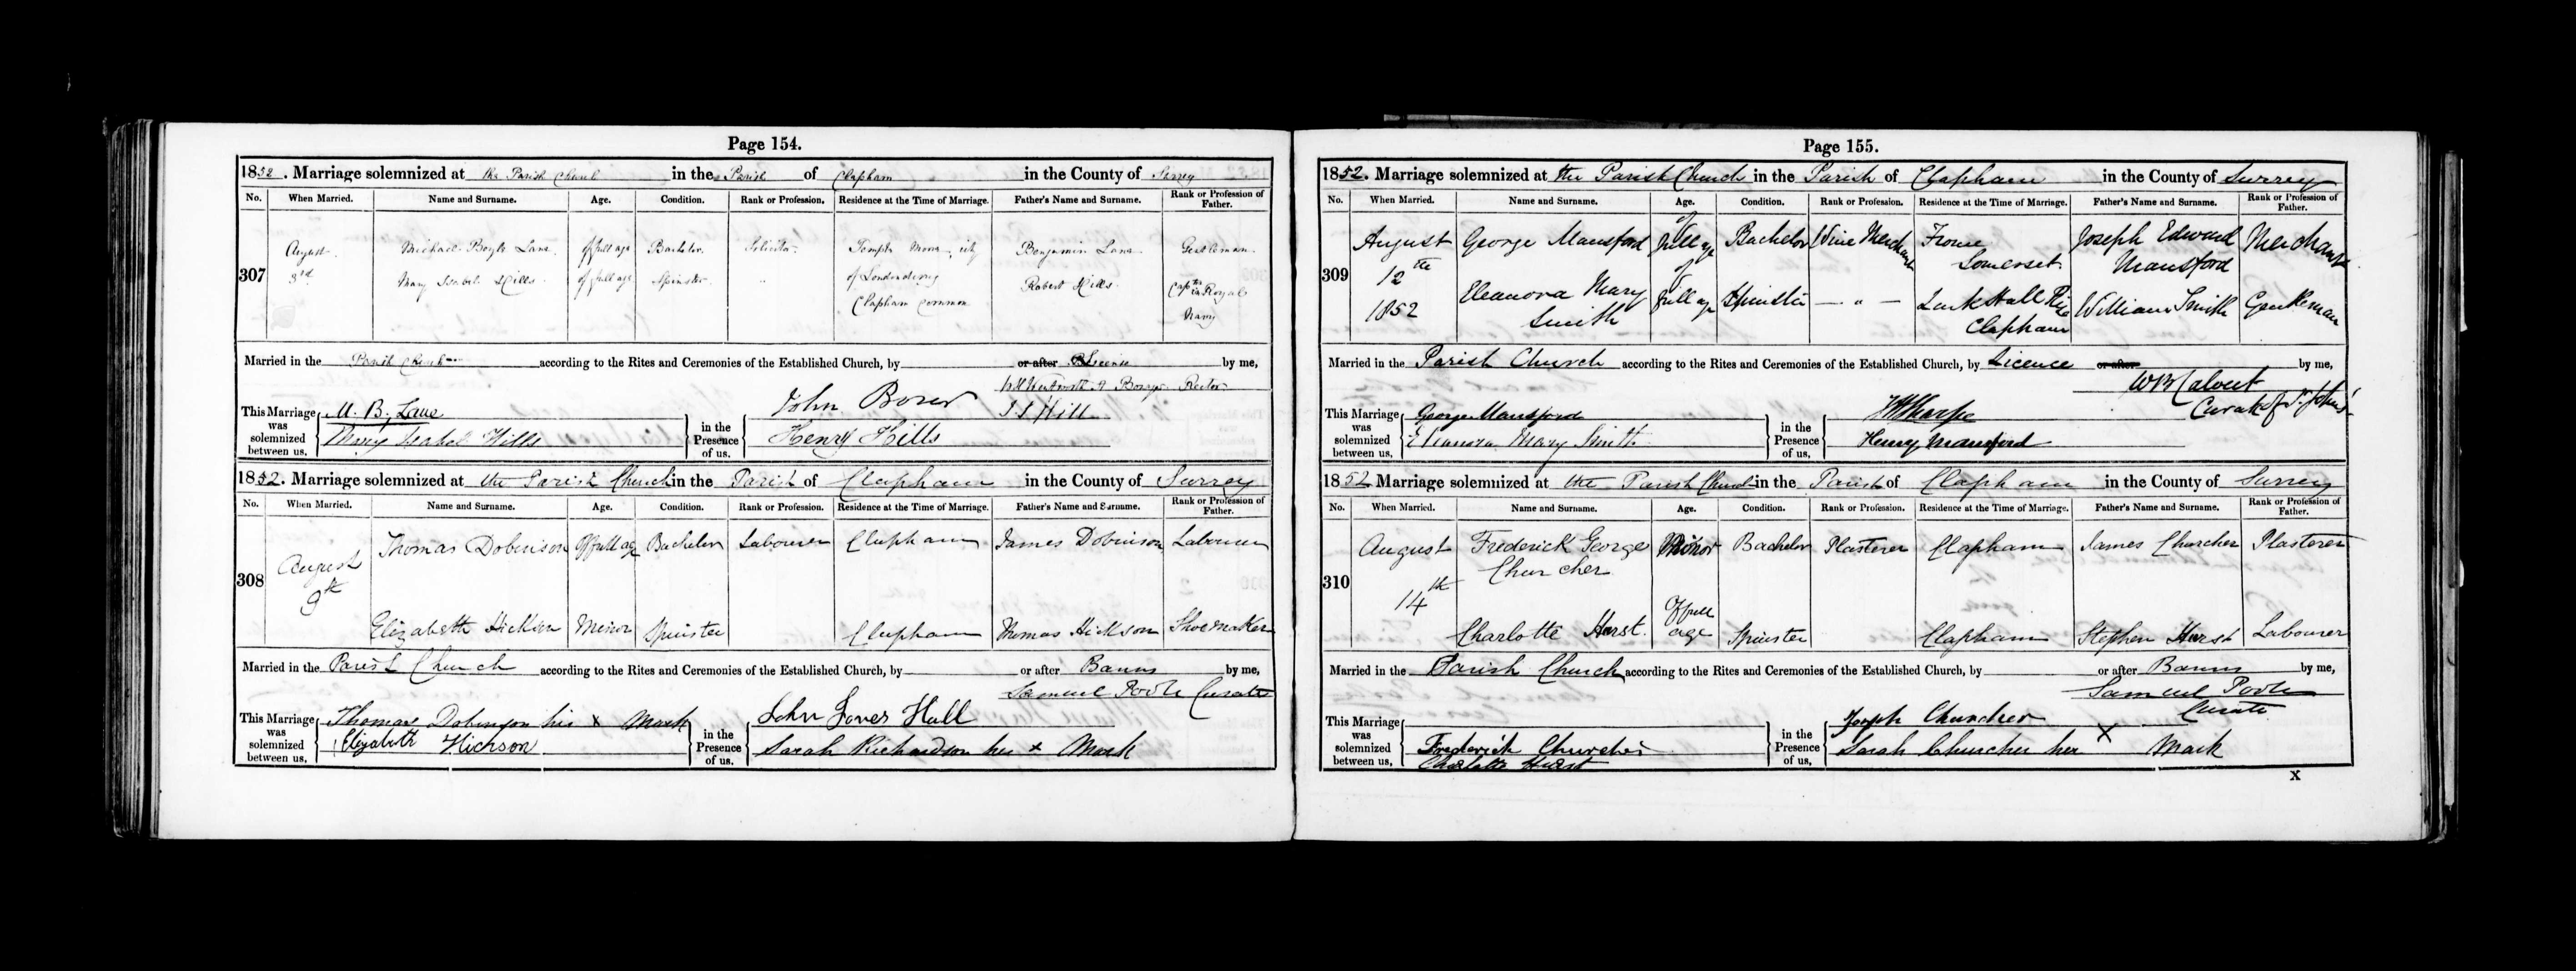 Page 154.
1852. Marriage solemnized at the Parish Church in the Parish of Clapham in the County of Surrey
No. When Married. Name and Surname. Age. Condition. Rank or Profession. Residence at the Time of Marriage. Father's Name and Surname. Rank or Profession of Father.
307 August 3rd Michael Boyle Lane of full age Bachelor Solicitor Temple city Benjamin Lane Gentleman
Mary Isabel Hills of full age Spinster " of Londonderry Clapham Common Robert Hills Captn in Royal Navy
Married in the Parish Church according to the Rites and Ceremonies of the Established Church, by or after Licence by me,
Rector
This Marriage was solemnized between us, M. B. Lane Mary Isabel Hills in the Presence of us, John Henry Hills
1852. Marriage solemnized at the Parish Church in the Parish of Clapham in the County of Surrey
No. When Married. Name and Surname. Age. Condition. Rank or Profession. Residence at the Time of Marriage. Father's Name and Surname. Rank or Profession of Father.
308 August 9th Thomas Dobinson Of full age Bachelor Labourer Clapham James Dobinson Labourer
Elizabeth Hickson Minor Spinster Clapham Thomas Hickson Shoemaker
Married in the Parish Church according to the Rites and Ceremonies of the Established Church, by or after Banns by me,
Samuel Poole Curate
This Marriage was solemnized between us, Thomas Dobinson his x Mark Elizabeth Hickson in the Presence of us, John Hall Sarah Richardson her x Mark
Page 155.
1852. Marriage solemnized at the Parish Church in the Parish of Clapham in the County of Surrey
No. When Married. Name and Surname. Age. Condition. Rank or Profession. Residence at the Time of Marriage. Father's Name and Surname. Rank or Profession of Father.
309 August 12th 1852 George Mansford of full age Bachelor Wine Merchant Frome Somerset Joseph Edward Mansford Merchant
Eleanora Mary Smith of full age Spinster — " — Lark Hall Clapham William Smith Gentleman
Married in the Parish Church according to the Rites and Ceremonies of the Established Church, by Licence or after by me,
W B Calvert
Curate of St. John's
This Marriage was solemnized between us, George Mansford Eleanora Mary Smith in the Presence of us, Henry Mansford
1852 Marriage solemnized at the Parish Church in the Parish of Clapham in the County of Surrey
No. When Married. Name and Surname. Age. Condition. Rank or Profession. Residence at the Time of Marriage. Father's Name and Surname. Rank or Profession of Father.
310 August 14th Frederick George Churcher Minor Bachelor Plasterer Clapham James Churcher Plasterer
Charlotte Hurst. Of full age Spinster Clapham Stephen Hurst Labourer
Married in the Parish Church according to the Rites and Ceremonies of the Established Church, by or after Banns by me,
Samuel Poole
Curate
This Marriage was solemnized between us, Frederick Churcher Charlotte Hurst in the Presence of us, Joseph Sarah Churcher her X Mark
X